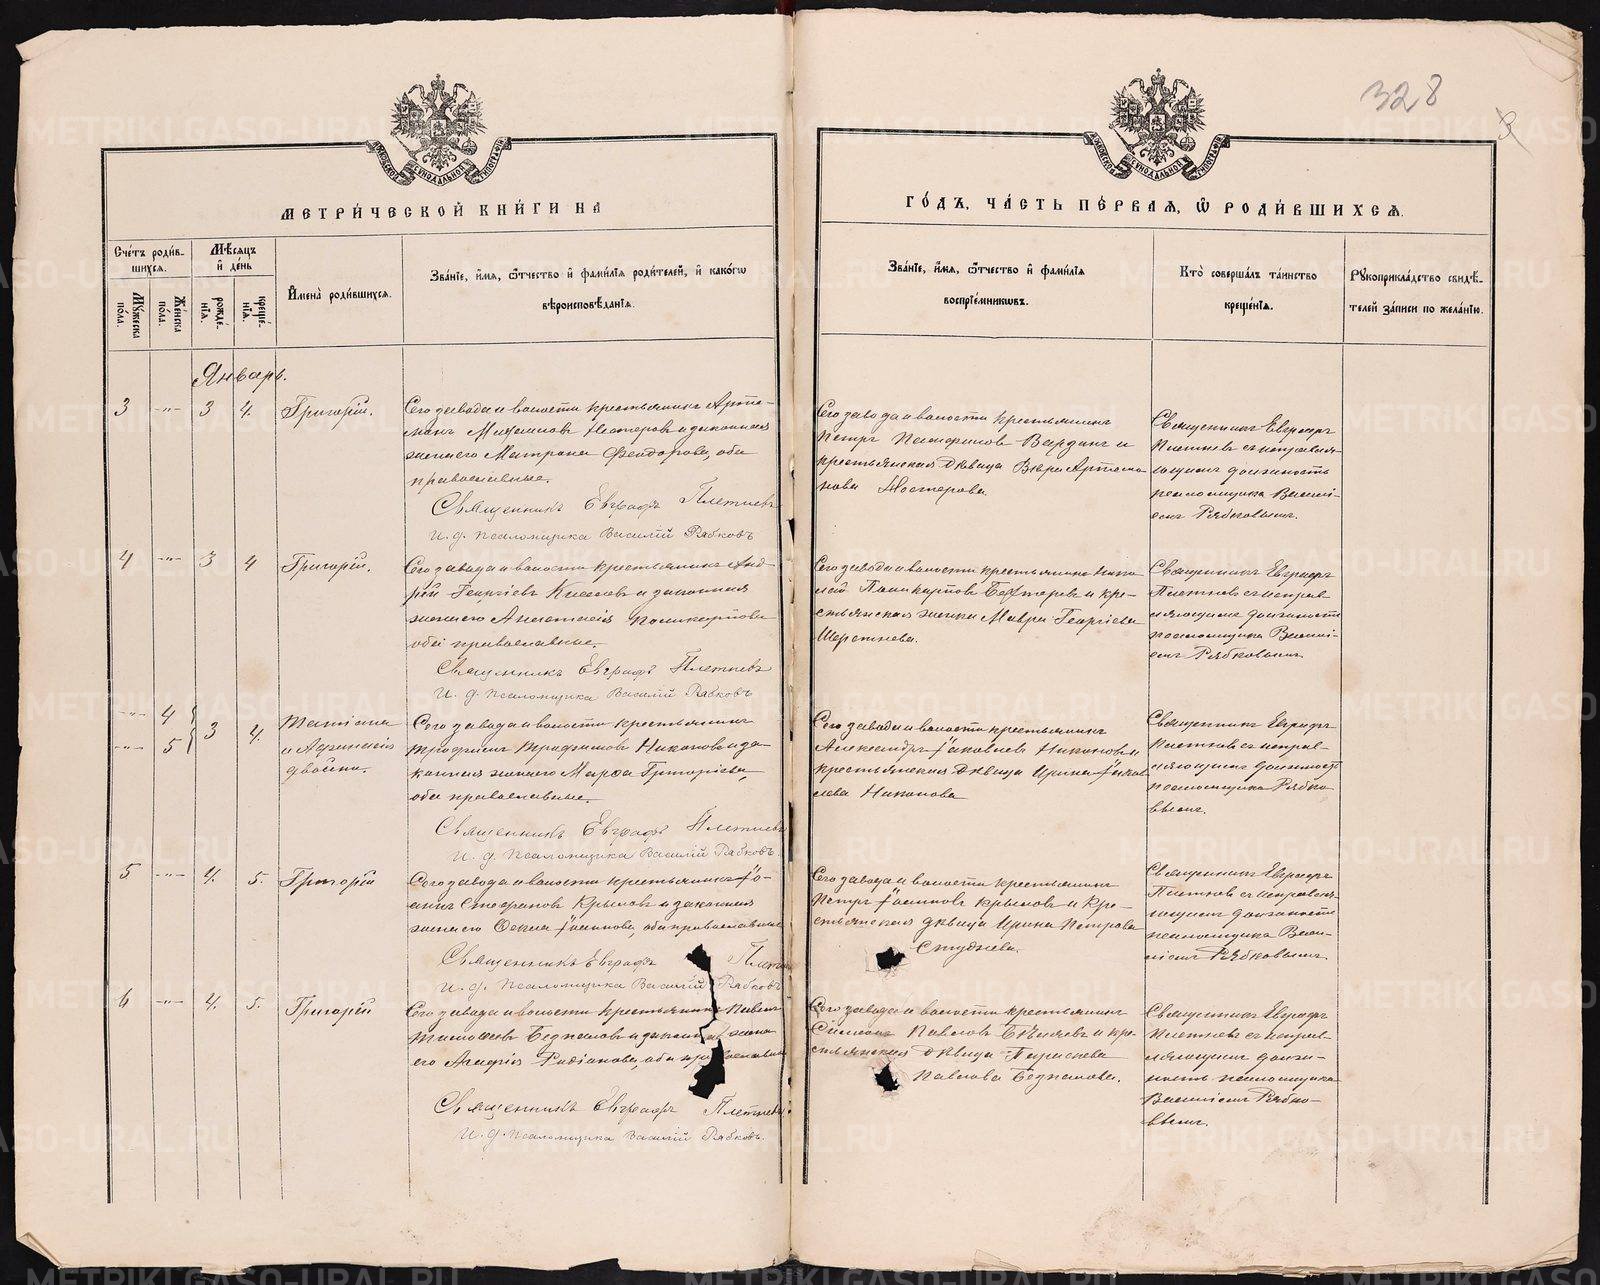 328
3
МЕТРИ́ЧЕСКОЙ КНИ́ГИ НА
ГО́ДЪ, ЧА́СТЬ ПЕ́РВАЯ, Ѽ РОДИ́ВШИХСЯ.
Сче́тъ роди́в-
шихся.
Мѣ́сяцъ
и де́нь
Му́жеска по́ла.
Же́нска по́ла.
рожде́-
нія.
креще́-
нія.
Имена̀ роди́вшихся.
Зва́ніе, и́мя, ѻ́тчество и фами́лія роди́телей, и како́гѡ
вѣроисповѣ́данія.
Зва́ніе, и́мя, ѻ́тчество и фами́лія
воспріе́мникѡвъ.
Кто̀ соверша́лъ та́инство
креще́нія.
Рꙋкоприкла́дство свидѣ́-
телей за́писи по жела́нію.
Январь.
3 -„- 3 4. Григорій.
Сего завода и волости крестьянинъ Арте-
монъ Нестеровъ и законная
жена его Матрона Феодорова, оба
православные.
Священникъ Евграфъ Плетневъ
И. д. псаломщика Василій Рябковъ
Сего завода и волости крестьянинъ
Петръ и
крестьянская дѣвица Вѣра Артемо-
нова Нестерова.
Священникъ Евграфъ
Плетневъ съ исправля-
ющимъ должность
псаломщика Васили-
емъ Рябковымъ.
4 -„- 3 4 Григорій.
Сего завода и волости крестьянинъ Анд-
рей Георгіевъ Киселевъ и законная
жена его Анастасія Поликарпова
оба православные.
Священникъ Евграфъ Плетневъ
И. д. псаломщика Василій Рябковъ
Сего завода и волости крестьянинъ Нико-
лай Поликарповъ и кре-
стьянская женка Мавра Георгіева
Священникъ Евграфъ
Плетневъ съ исправ-
ляющимъ должность
псаломщика Васили-
емъ Рябковымъ.
-„- 4
-„- 5
3 4.
Татіана
и Афанасія
двойни.
Сего завода и волости крестьянинъ
Трофимъ Никоновъ и за-
конная жена его Марѳа Григоріева,
оба православные.
Священникъ Евграфъ Плетневъ
И. д. псаломщика Василій Рябковъ.
Сего завода и волости крестьянинъ
Александръ Іаковлевъ Никоновъ и
крестьянская дѣвица Ирина Іаков-
лева Никонова
Священникъ Евграфъ
Плетневъ съ исправ-
ляющимъ должность
псаломщика Рябко-
вымъ.
5 -„- 4. 5. Григорій
Сего завода и волости крестьянинъ Іо-
аннъ Стефановъ Крыловъ и законная
жена его Ѳекла Іоаннова, оба православные
Священникъ Евграфъ Плетн
И. д. псаломщика Василій Рябковъ
Сего завода и волости крестьянинъ
Петръ Іоанновъ Крыловъ и кре-
стьянская дѣвица Ирина Петрова
Студнева.
Священникъ Евграфъ
Плетневъ съ исправля-
ющимъ должность
псаломщика Васи-
ліемъ Рябковымъ.
6 -„- 4. 5. Григорій
Сего завода и волости крестьянинъ Павелъ
Тимоѳеевъ и законная жена
его Родіонова, оба православные
Священникъ Евграфъ Плетневъ
И. д. псаломщика Василій Рябковъ.
Сего завода и волости крестьянинъ
Симеонъ Павловъ Бѣляевъ и кре-
стьянская дѣвица Параскева
Павлова
Священникъ Евграфъ
Плетневъ съ исправ-
ляющимъ долж-
ность псаломщика
Василіемъ Рябко-
вымъ.